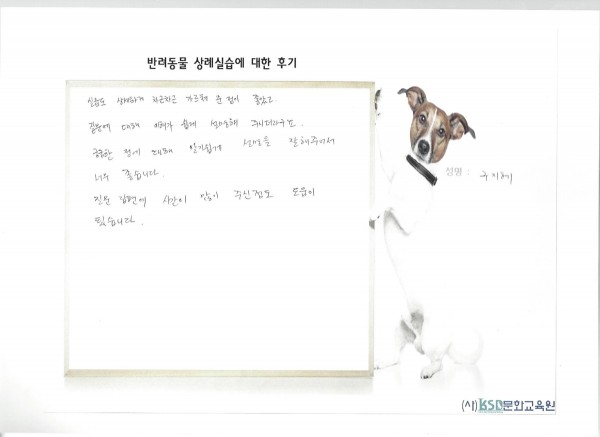 반려동물 상례실습에 대한 후기
실습도 상세하게 차근차근 가르쳐 준 점이 좋았고
질문에 대해 이해가 쉽게 설명해 주시더라구요.
궁금한 점에 대해 알기쉽게 설명을 잘해주셔서
너무 좋습니다.
질문 답변에 시간이 많이 주신점도 도움이
됐습니다.
성명 : 구지혜
(사)KSD문화교육원